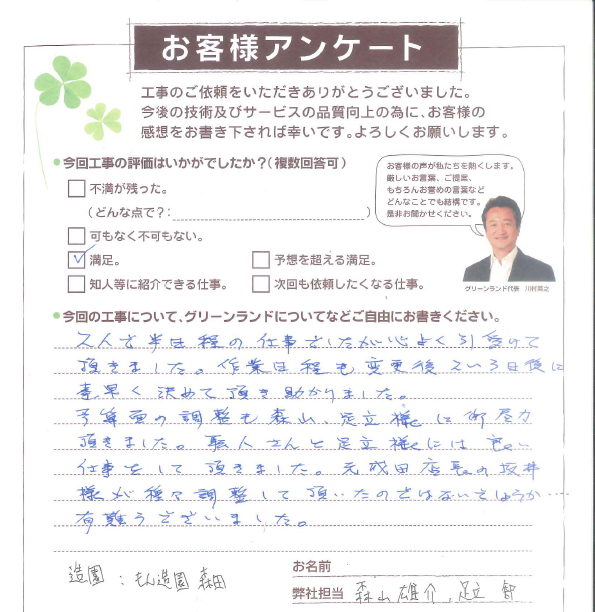 お客様アンケート
工事のご依頼をいただきありがとうございました。
今後の技術及びサービスの品質向上の為に、お客様の
感想をお書き下されば幸いです。よろしくお願いします。
●今回工事の評価はいかがでしたか?(複数回答可)
不満が残った。
(どんな点で?: )
可もなく不可もない。
満足。
予想を超える満足。
知人等に紹介できる仕事。
次回も依頼したくなる仕事。
お客様の声が私たちを熱くします。
厳しいお言葉、ご提案、
もちろんお誉めの言葉など
どんなことでも結構です。
是非お聞かせください。
グリーンランド代表 川村真之
●今回の工事について、グリーンランドについてなどご自由にお書きください。
2人で半日程の仕事でしたが心よく引受けて
頂きました。作業日程も変更後2い3日後に
素早く決めて頂き助かりました。
予算面の調整も森山、足立様に御尽力
頂きました。職人さんと足立様には良い
仕事をして頂きました。元成田店長の坂井
様が種々調整して頂いたのではないでしょうか…
有難うございました。
造園 : もん造園 森田
お名前
弊社担当 森山雄介、足立